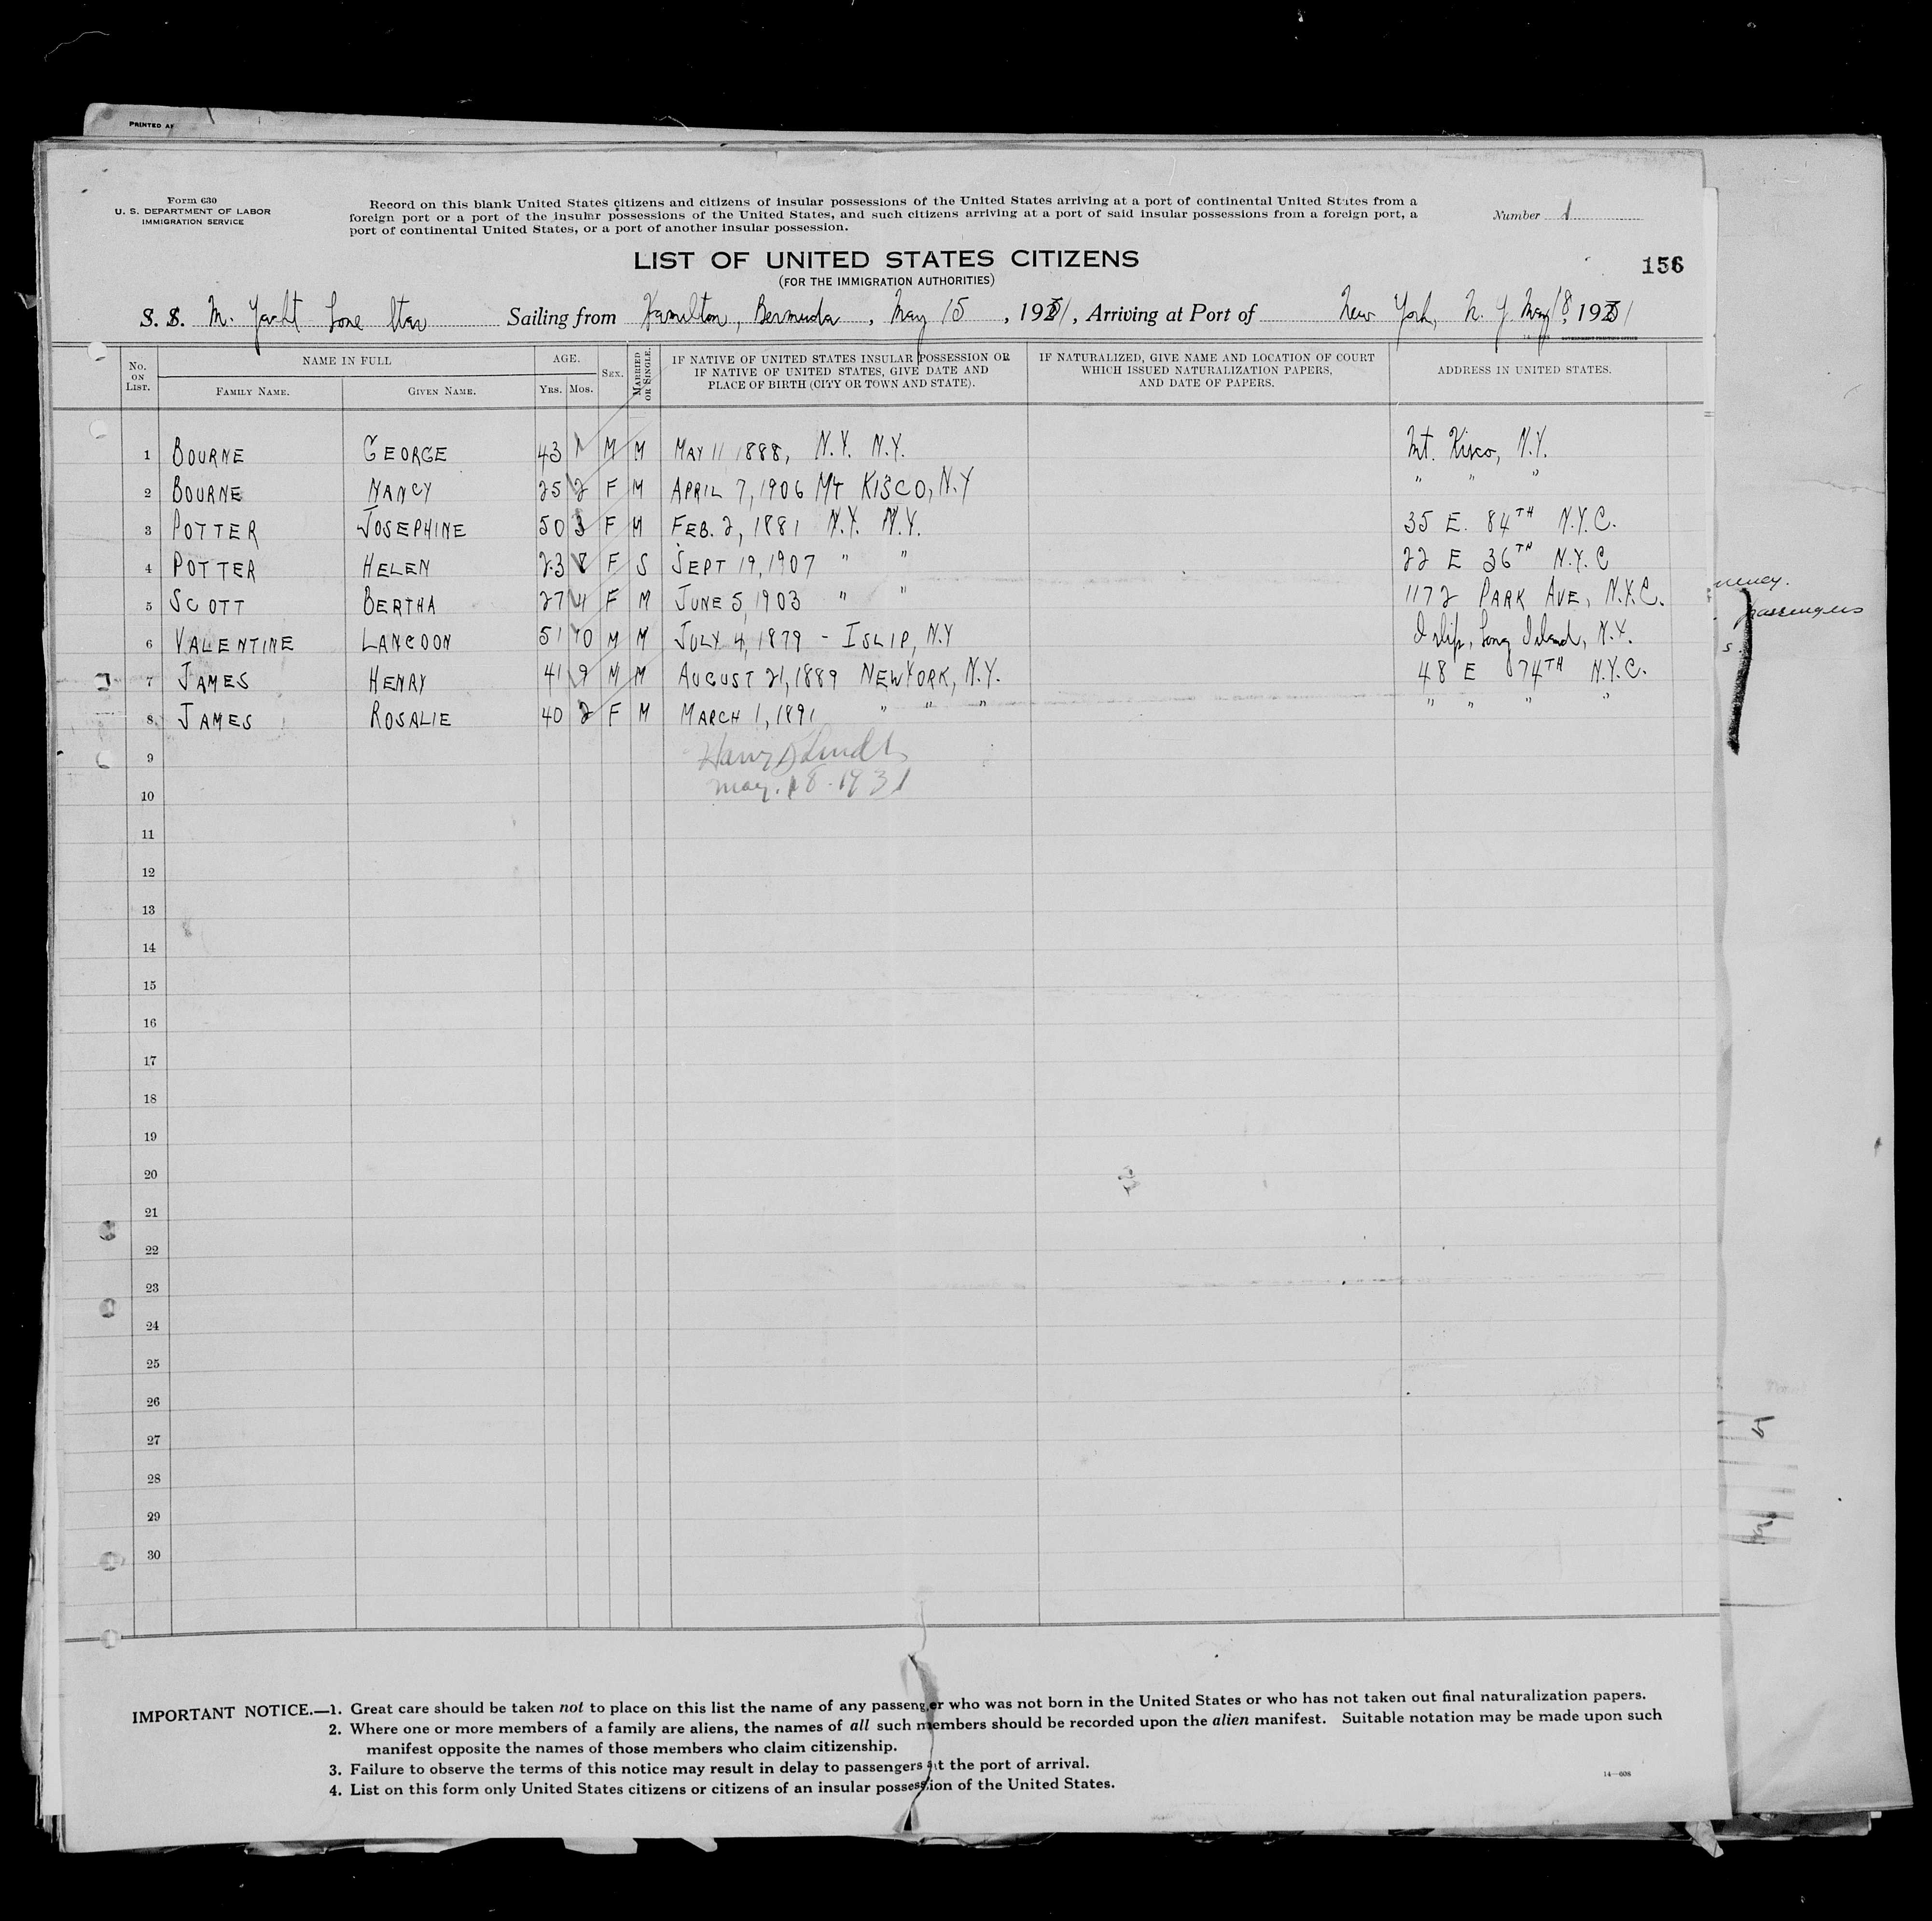 PRINTED AT
Form 630
U. S. DEPARTMENT OF LABOR
IMMIGRATION SERVICE
Record on this blank United States citizens and citizens of insular possessions of the United States arriving at a port of continental United States from a
foreign port or a port of the insular possessions of the United States, and such citizens arriving at a port of said insular possessions from a foreign port, a
port of continental United States, or a port of another insular possession.
Number 1
LIST OF UNITED STATES CITIZENS
(FOR THE IMMIGRATION AUTHORITIES)
156
S. S. M. Yacht Lone Star Sailing from Hamilton, Bermuda, May 15, 1931, Arriving at Port of New York, N. Y. May 18, 1931
No. ON LIST. NAME IN FULL AGE. SEX. MARRIED OR SINGLE. IF NATIVE OF UNITED STATES INSULAR POSSESSION OR IF NATIVE OF UNITED STATES, GIVE DATE AND PLACE OF BIRTH (CITY OR TOWN AND STATE). IF NATURALIZED, GIVE NAME AND LOCATION OF COURT WHICH ISSUED NATURALIZATION PAPERS, AND DATE OF PAPERS. ADDRESS IN UNITED STATES.
FAMILY NAME. GIVEN NAME. YRS. MOS.
1 BOURNE GEORGE 43 M M MAY 11 1888, N.Y. N.Y. Mt. Kisco, N.Y.
2 BOURNE NANCY 25 2 F M APRIL 7, 1906 MT KISCO, N.Y " "
3 POTTER JOSEPHINE 50 3 F M FEB. 2, 1881 N.Y. N.Y. 35 E. 84TH N.Y.C.
4 POTTER HELEN 23 8 F S SEPT 19, 1907 " " 22 E 36TH N.Y.C
5 SCOTT BERTHA 27 11 F M JUNE 5, 1903 " " 1172 PARK AVE, N.Y.C.
6 VALENTINE LANGDON 51 10 M M JULY 4, 1879 - ISLIP, N.Y Islip, Long Island, N.Y.
7 JAMES HENRY 41 9 M M AUGUST 21, 1889 NEW YORK, N.Y. 48 E 74TH N.Y.C.
8 JAMES ROSALIE 40 2 F M MARCH 1, 1891 " " " " " " "
9
May. 18 - 1931
10
11
12
13
14
15
16
17
18
19
20
21
22
23
24
25
26
27
28
29
30
passengers
IMPORTANT NOTICE.—1. Great care should be taken not to place on this list the name of any passenger who was not born in the United States or who has not taken out final naturalization papers.
2. Where one or more members of a family are aliens, the names of all such members should be recorded upon the alien manifest. Suitable notation may be made upon such
manifest opposite the names of those members who claim citizenship.
3. Failure to observe the terms of this notice may result in delay to passengers at the port of arrival.
4. List on this form only United States citizens or citizens of an insular possession of the United States.
14—608